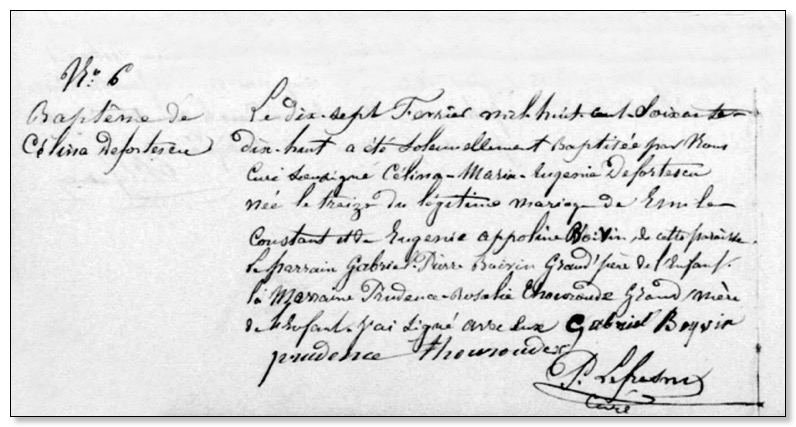 N.° 6
Baptême de
Célina Defortescu
Le dix-sept Fevrier mil huit cent soixante-
dix-huit a été solennellement Baptisée par Nous
Curé soussigné Célina-Marie-Eugenie Defortescu
née le treize du légitime mariage de Emile
Constant et de Eugenie appoline Boivin, de cette paroisse.
Le parrain Gabriel Pierre Boivin Grand'père de l'Enfant.
la Marraine Prudence-Rosalie Thouroude Grand'mère
de l'Enfant. J'ai signé avec Eux Gabriel Boyvin
prudence thouroudes
P. Lefresne
Curé